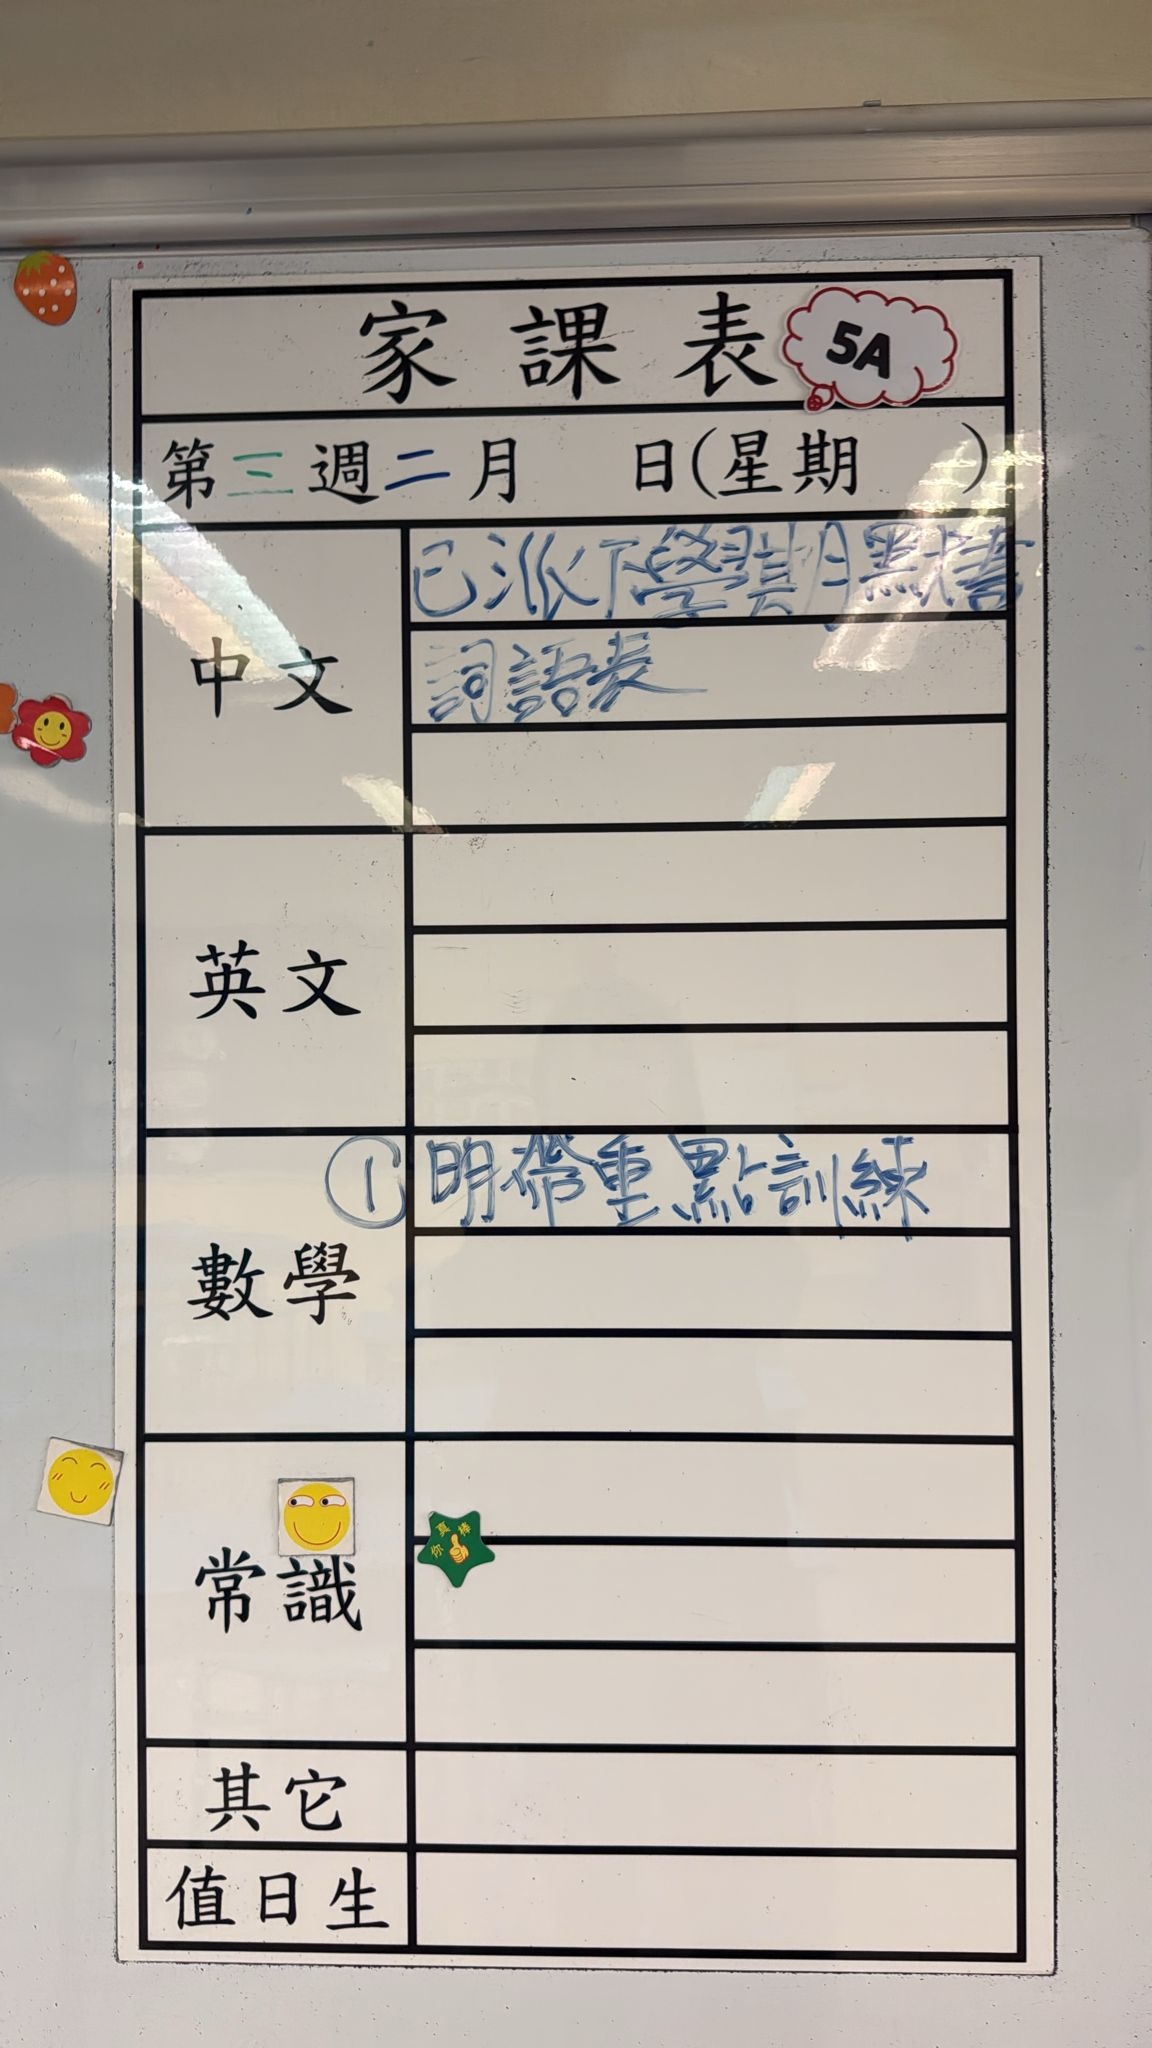 家課表 5A
第三週二月 日(星期 )
中文
已派下學期默書
詞語表
英文
數學
① 明帶重點訓練
常識
你真棒
其它
值日生